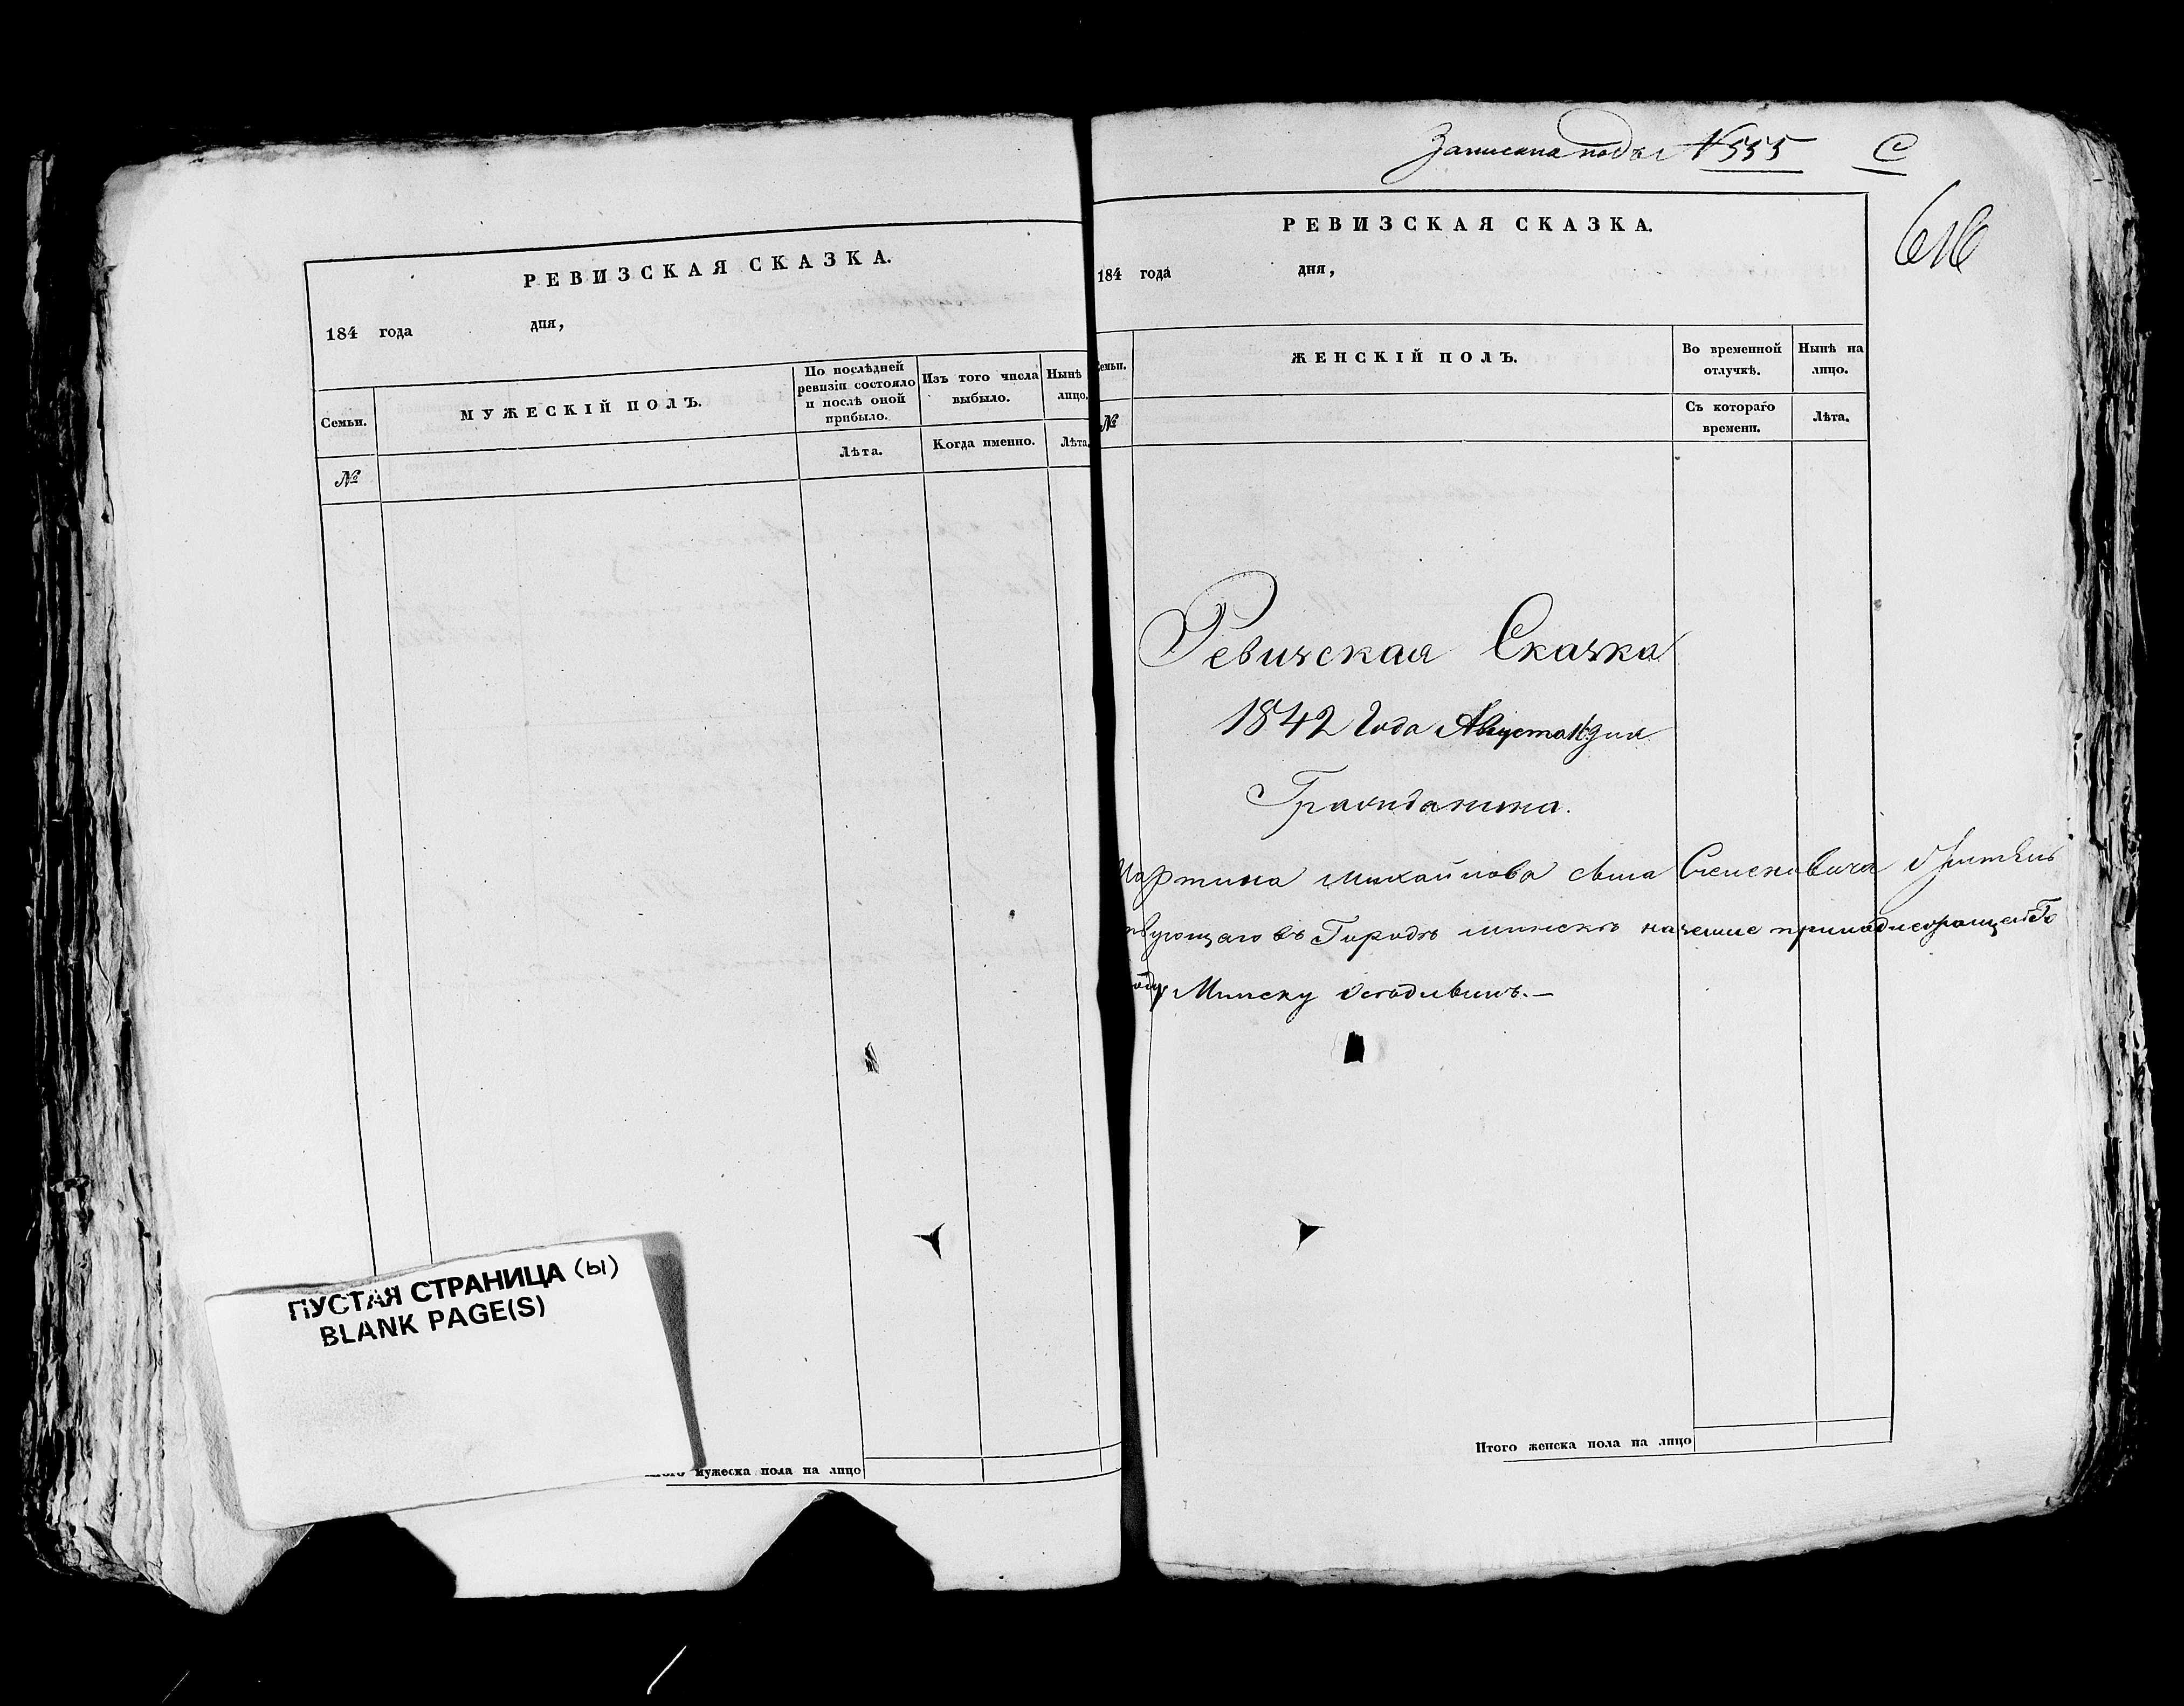 РЕВИЗСКАЯ СКАЗКА.
184 года дня,
Семьи.
МУЖЕСКІЙ ПОЛЪ.
По послѣдней ревизіи состояло и послѣ оной прибыло.
Изъ того числа выбыло.
Нынѣ лицо.
Лѣта.
Когда именно.
Лѣта.
№
ПУСТАЯ СТРАНИЦА (Ы)
BLANK PAGE(S)
мужеска пола на лицо
Записана подъ №555 С
616
РЕВИЗСКАЯ СКАЗКА.
184 года дня,
ЖЕНСКІЙ ПОЛЪ.
Во временной отлучкѣ.
Нынѣ на лицо.
№
Съ котораго времени.
Лѣта.
Ревизская Сказка
1842 Года Августа дня
Гражданина.
Мартина Михайлова сына Жителъ
ствующаго въ Городѣ Минскѣ на земле принадлежащей Го
роду Минску
Итого женска пола на лицо